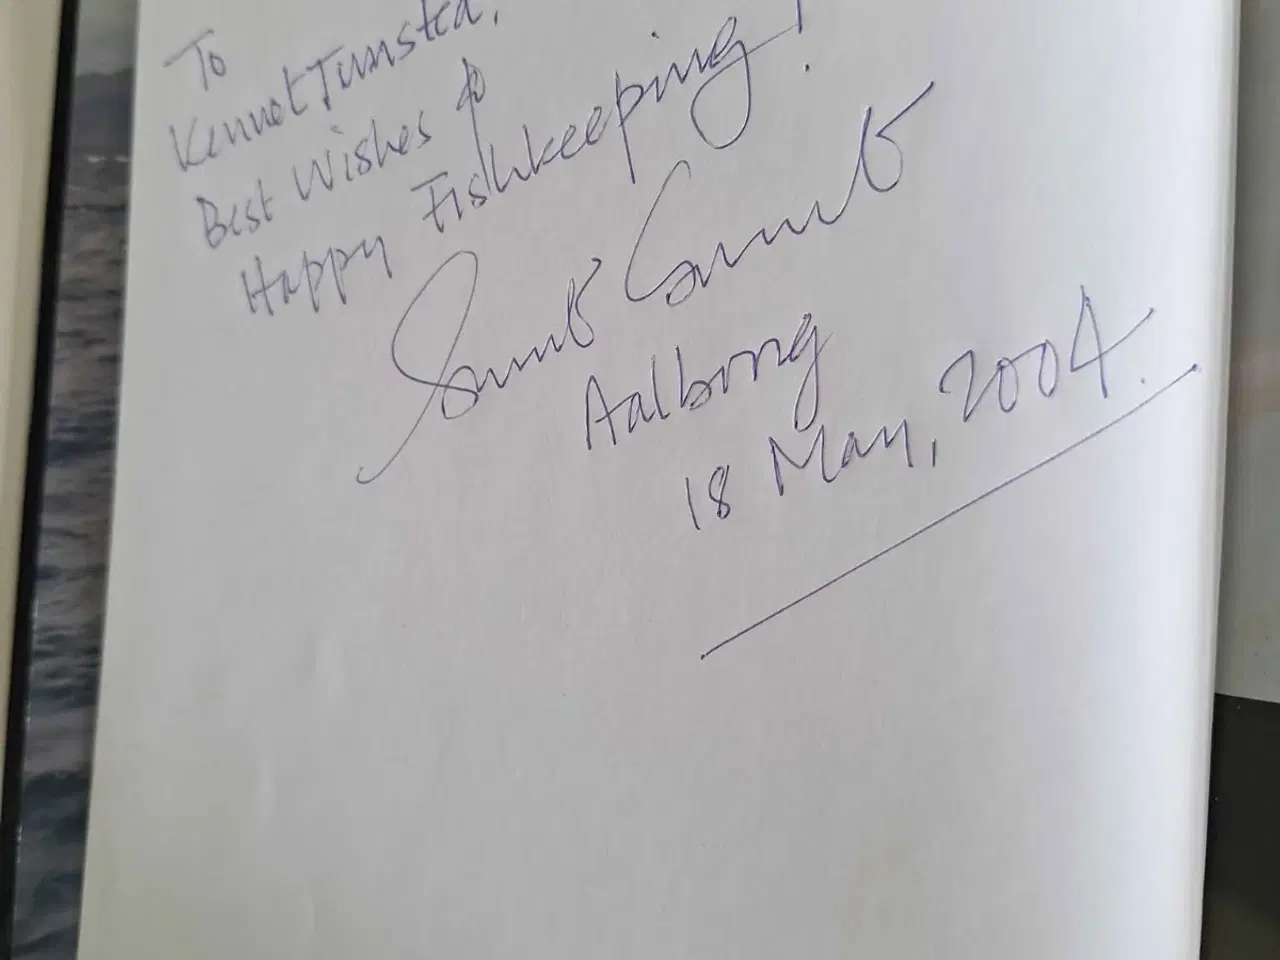 To
Kennet Tunsted,
Best Wishes &
Happy Fishkeeping!
Aalborg
18 May, 2004.